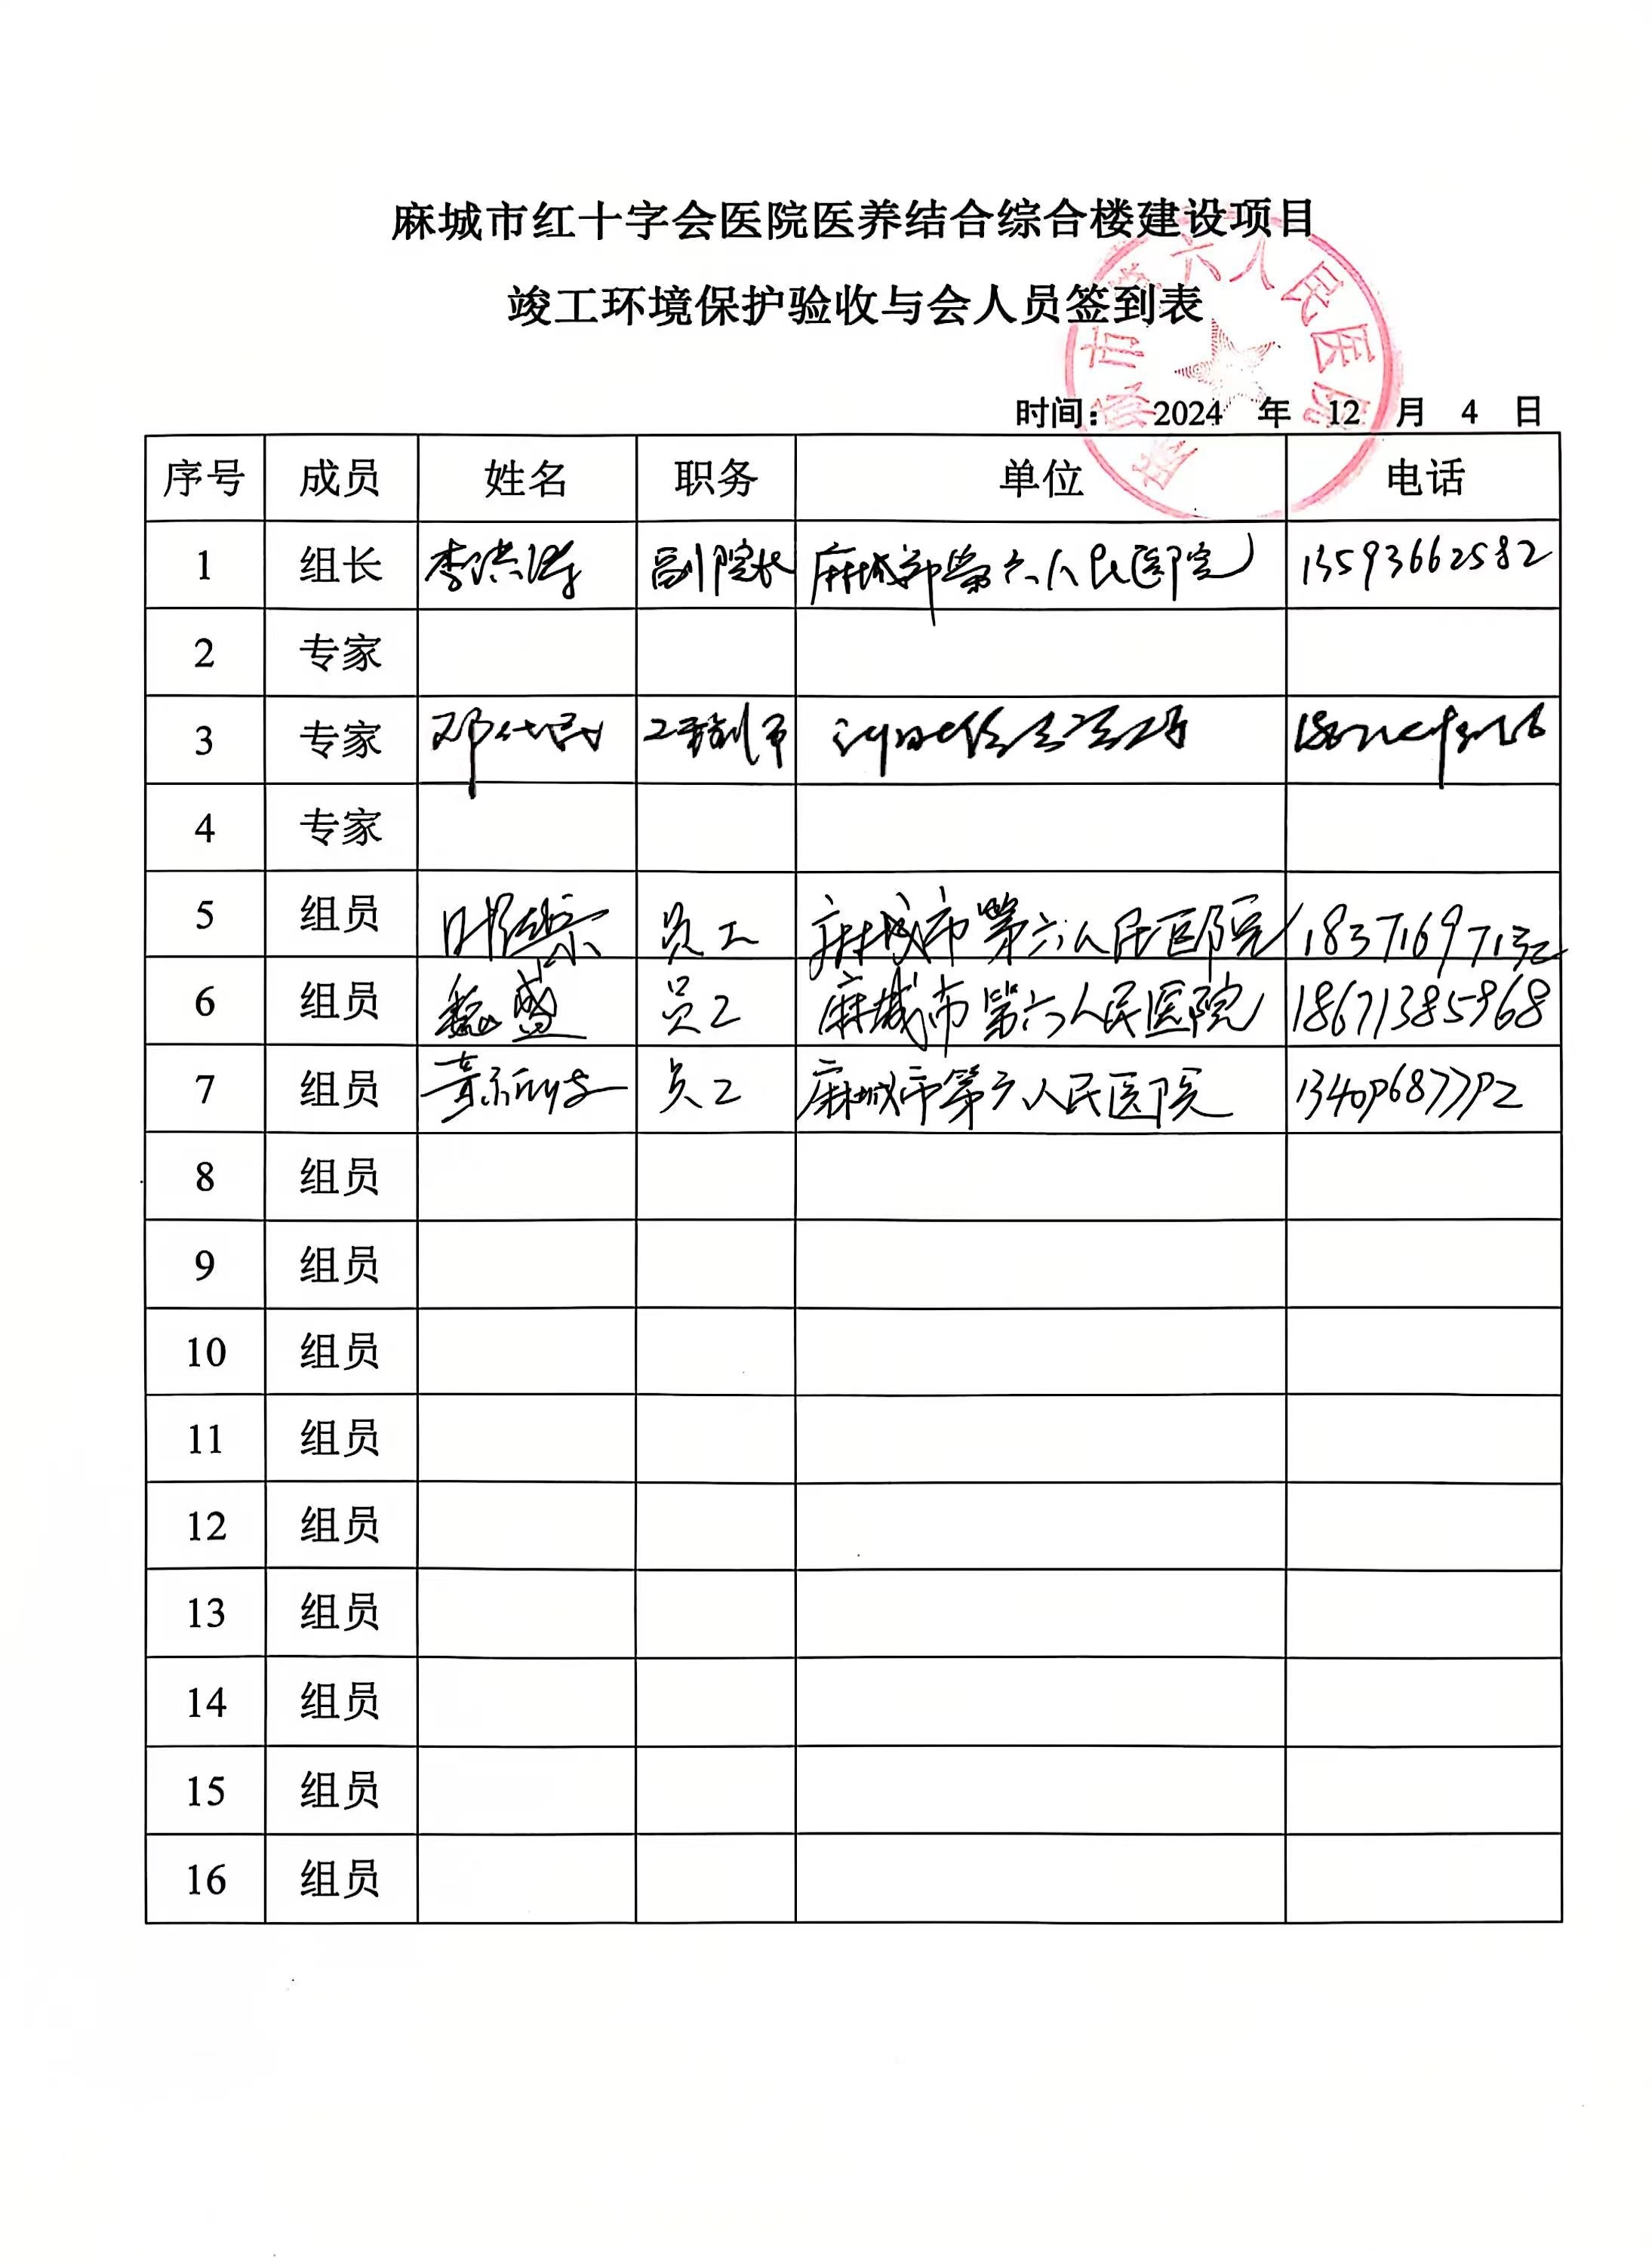 麻城市红十字会医院医养结合综合楼建设项目
竣工环境保护验收与会人员签到表
麻城市第六人民医院
时间： 2024 年 12 月 4 日
序号 成员 姓名 职务 单位 电话
1 组长 李洪涛 副院长 麻城市第六人民医院 13593662582
2 专家
3 专家 邓代
4 专家
5 组员 员工 麻城市第六人民医院
6 组员 魏盛 员工 麻城市第六人民医院 18671385968
7 组员 员工 麻城市第六人民医院 13409687792
8 组员
9 组员
10 组员
11 组员
12 组员
13 组员
14 组员
15 组员
16 组员